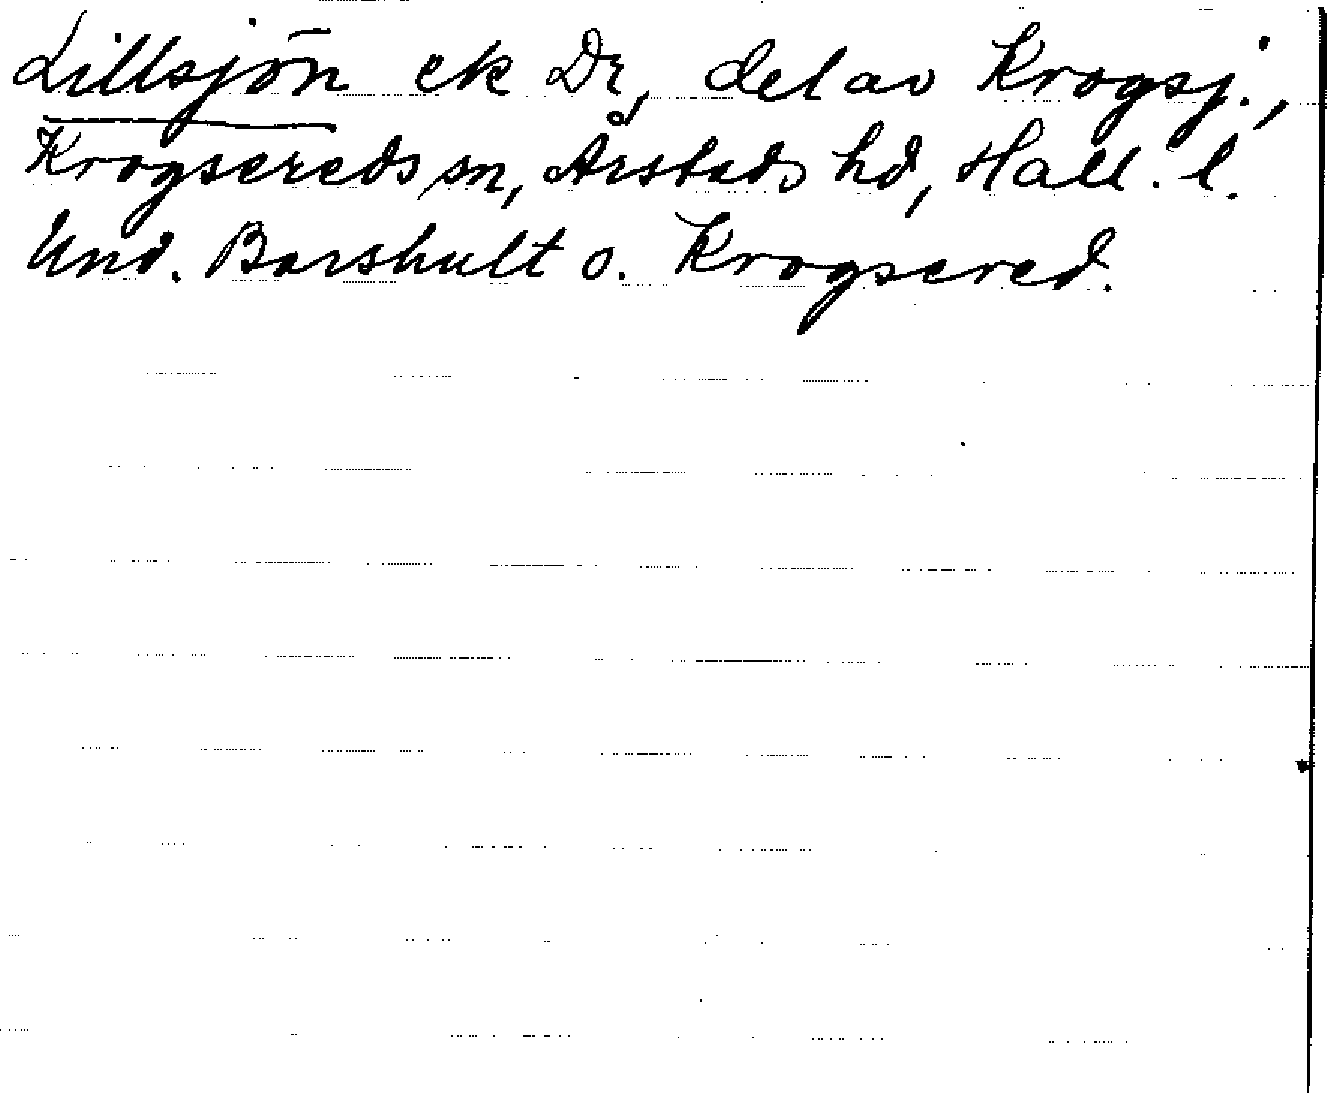 Lillsjön ek Dr, del av Krogsj.,
Krogsereds sn, Årstads hd, Hall. l.
Und. Borshult o. Krogsered.